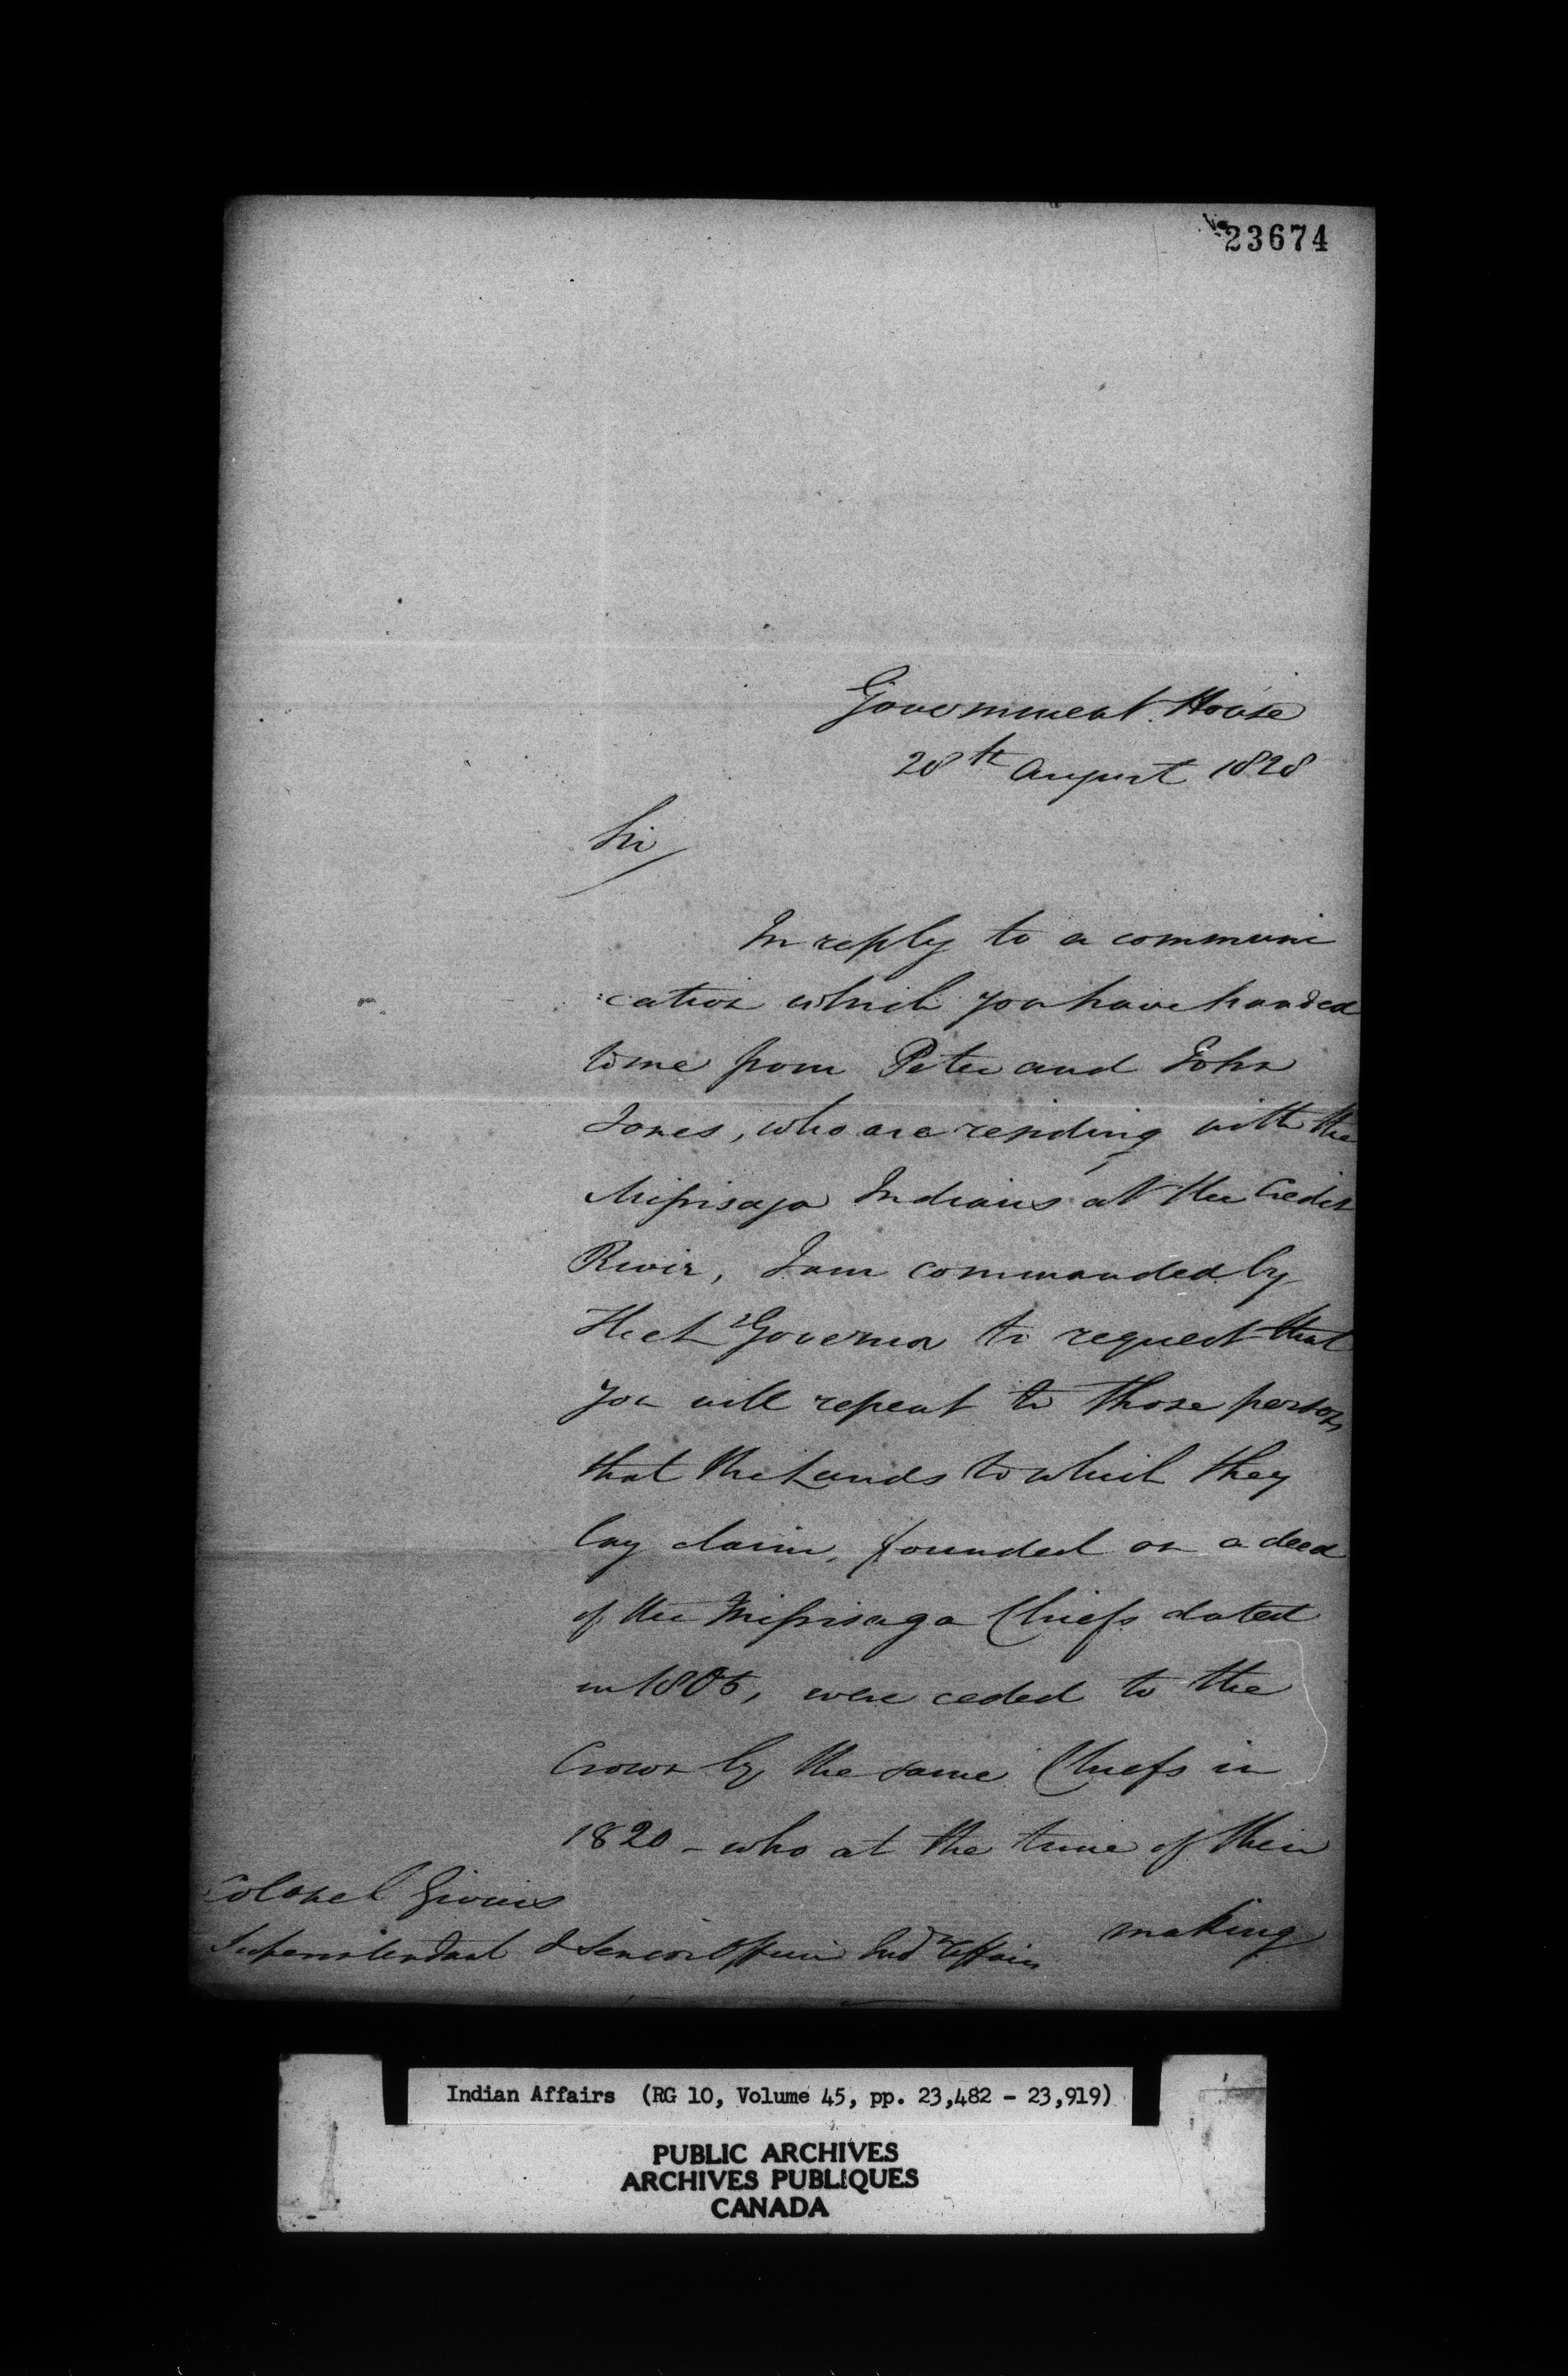 23674
Government House
28th August 1828
Sir
In reply to a communi
:cation which you have handed
to me from Peter and John
Jones, who are residing with the
Missisaga Indians at the Credit
River, I am commanded by
the Lt Governor to request that
you will repeat to those persons
that the Lands to which they
lay claim, founded on a deed
of the Missisaga Chiefs dated
in 1805, were ceded to the
Crown by the same Chiefs in
1820 - who at the time of their
making
Colonel Givins
Superintendant & Senior Officer Indn Affairs
Indian Affairs (RG 10, Volume 45, pp. 23,482 - 23,919)
PUBLIC ARCHIVES
ARCHIVES PUBLIQUES
CANADA